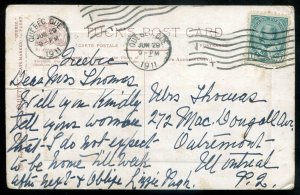 TUCK'S POST CARD
CARTE POSTALE
QUEBEC, QUE.
JUN 29
9-PM
1911
QUEBEC, QUE.
JUN 29
9-PM
1911
Quebec
Dear Mrs Thomas
Will you Kindly
tell your woman
that I do not expect
to be home till week
after next & Oblige Lizzie Pugh.
Mrs Thomas
272 MacDougall Av
Outremont
Montreal
P.Q.